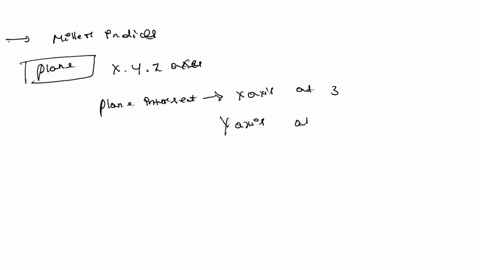 → Millers Indices
Plane X.Y.Z axes
plane intersect → X axis at 3
Y axis at